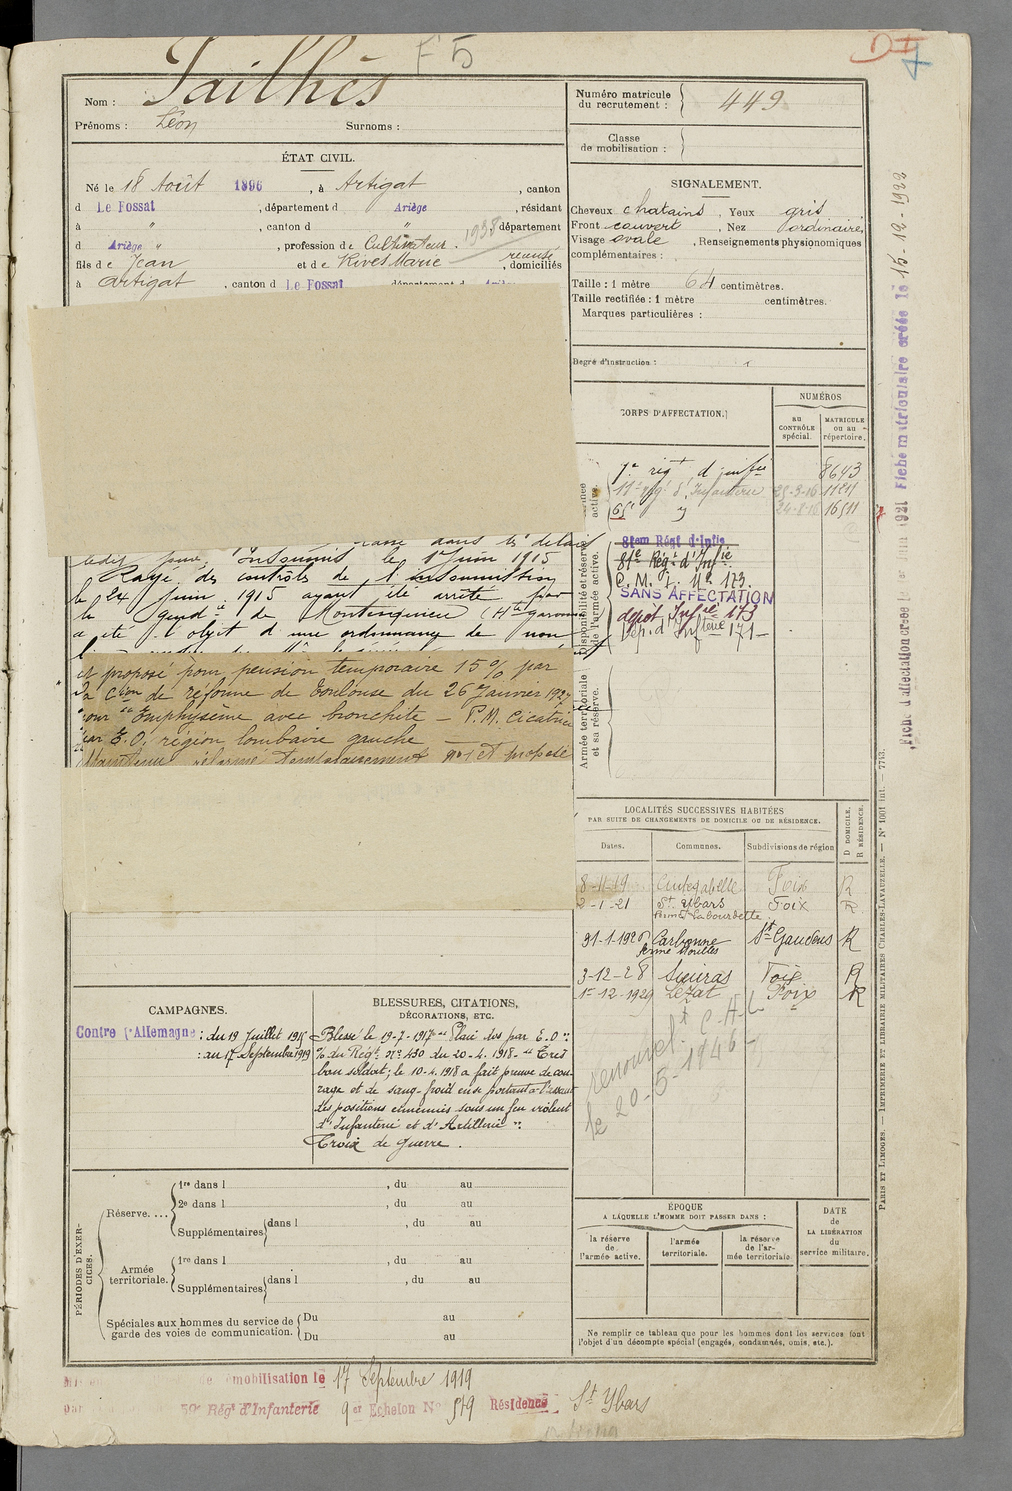 F5
Nom : Tailhès
Prénoms : Léon Surnoms :
Numéro matricule
du recrutement : 449
Classe
de mobilisation :
ÉTAT CIVIL.
Né le 18 Août 1896, à Artigat, canton
d Le Fossat, département d Ariège, résidant
à " , canton d " , département
d Ariège " , profession de Cultivateur.
fils de Jean et de Rives Marie , domiciliés
à Artigat, canton d Le Fossat département d
SIGNALEMENT.
Cheveux chatains, Yeux gris
Front couvert, Nez ordinaire,
Visage ovale, Renseignements physionomiques
complémentaires :
Taille : 1 mètre 64 centimètres.
Taille rectifiée : 1 mètre centimètres.
Marques particulières :
Degré d'instruction :
CORPS D'AFFECTATION.
NUMÉROS
au
CONTRÔLE
spécial.
MATRICULE
OU AU
répertoire.
active.
7e régt d'infie 8643
65e
Disponibilité et réserve
de l'armée active.
81em Régt d'Infie
81e Régt d'Infie
C. M. I. No 173.
SANS AFFECTATION
dépot Infie 173
Dép. d'Infterie 171
Armée territoriale
et sa réserve.
dans les délais
ledit jour. Insoumis le 1er Juin 1915
Rayé des contrôles de l'insoumission
le 24 Juin 1915 ayant été arrêté par
la gendie de Montesquieu (Hte garonne
a été l'objet d'une ordonnance de non
et proposé pour pension temporaire 15% par
la Cion de réforme de Toulouse du 26 Janvier 1927
pour Emphysème avec bronchite – P.M. Cicatrice
par E.O. région lombaire gauche
LOCALITÉS SUCCESSIVES HABITÉES
PAR SUITE DE CHANGEMENTS DE DOMICILE OU DE RÉSIDENCE.
Dates. Communes. Subdivisions de région
D DOMICILE.
R RÉSIDENCE.
8-11-19 Cintegabelle Foix R
2-1-21 St Ybars Foix R
ferme Labourdette
31-1-1926 Carbonne St Gaudens R
3-12-28 Sieuras Foix R
1er-12-1929 Lézat Foix R
renouvelt C.H.L
le 20-5-1946
CAMPAGNES.
Contre l'Allemagne : du 19 Juillet 1915
: au 17 Septembre 1919
BLESSURES, CITATIONS,
DÉCORATIONS, ETC.
Blessé le 19-7-1917 "Plaie dos par E.O".
% du Régt No 430 du 20-4-1918 "Très
bon soldat; le 10-4-1918 a fait preuve de cou-
rage et de sang-froid en se portant à l'assaut
des positions ennemies sous un feu violent
d'Infanterie et d'Artillerie".
Croix de guerre.
PÉRIODES D'EXER-
CICES.
Réserve....
1re dans l , du au
2e dans l , du au
Supplémentaires dans l , du au
Armée
territoriale.
1re dans l , du au
Supplémentaires dans l , du au
Spéciales aux hommes du service de
garde des voies de communication.
Du au
Du au
ÉPOQUE
A LAQUELLE L'HOMME DOIT PASSER DANS :
la réserve
de
l'armée active.
l'armée
territoriale.
la réserve
de l'ar-
mée territoriale
DATE
de
LA LIBÉRATION
du
service militaire.
Ne remplir ce tableau que pour les hommes dont les services font
l'objet d'un décompte spécial (engagés, condamnés, omis, etc.).
démobilisation le 17 Septembre 1919
Régt d'Infanterie 9er Echelon No 579 Résidence St Ybars
Fiche matriculaire créée le 15-12-1922
Fiche d'affectation créée le 1921
PARIS ET LIMOGES. — IMPRIMERIE ET LIBRAIRIE MILITAIRES CHARLES-LAVAUZELLE. — N° 1001 int. — 7713.